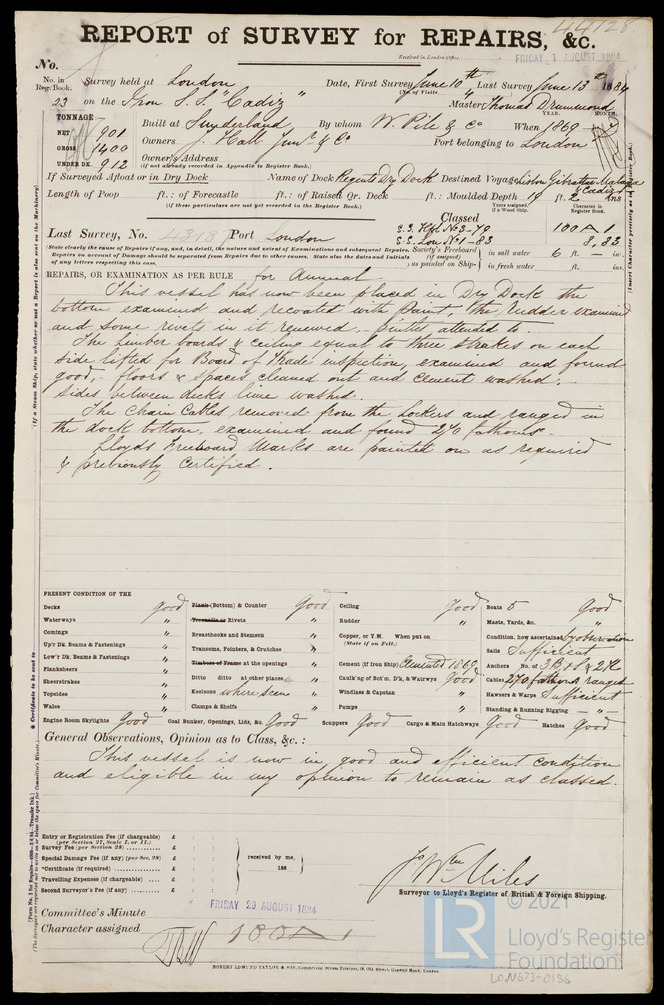 44128
REPORT of SURVEY for REPAIRS, &c.
Received in London Office,
FRIDAY 1 AUGUST 1884
No.
No. in Reg. Book. Survey held at London Date, First Survey June 10th Last Survey June 13th 1884
(No. of Visits 4
23 on the Iron S.S. "Cadiz" Master Thomas Drummond
TONNAGE:— YEAR. MONTH.
NET 901 Built at Sunderland By whom W. Pile & Co When 1869
GROSS. 1400 Owners J. Hall Junr & Co Port belonging to London
UNDER DK. 912 Owner's Address
(if not already recorded in Appendix to Register Book.)
If Surveyed Afloat or in Dry Dock Name of Dock Regents Dry Dock Destined Voyage Lisbon Gibraltar Malaga & Cadiz
Length of Poop ft.: of Forecastle ft.: of Raised Qr. Deck ft.: Moulded Depth 19 ft. 2 ins
(if these particulars are not yet recorded in the Register Book.)
Years assigned, if a Wood Ship. Character in Register Book.
Classed
Last Survey, No. 43737 Port London S.S. No 3-79 100 A 1
S.S. Lon No 1-83 8,83
(State clearly the Cause of Repairs if any, and, in detail, the nature and extent of Examinations and subsequent Repairs.
Repairs on account of Damage should be separated from Repairs due to other causes. State also the dates and Initials
of any letters respecting this case.)
Society's Freeboard (if assigned) as painted on Ship— in salt water 6 ft. — in.
in fresh water ft. ins.
REPAIRS, OR EXAMINATION AS PER RULE for Annual
This vessel has now been placed in Dry Dock the
bottom examined and recoated with paint, the Rudder examined
and some rivets in it renewed. - pintles attended to.
The limber boards & ceiling equal to three strakes on each
side lifted for Board of Trade inspection, examined and found
good, - floors & spaces cleaned out and cement washed. -
sides between decks lime washed.
The Chain Cables removed from the Lockers and ranged in
the dock bottom, examined and found 270 fathoms.
Lloyds Freeboard Marks are painted on as required
& previously certified.
PRESENT CONDITION OF THE
Decks good Plank (Bottom) & Counter Good Ceiling Good Boats 5 Good
Waterways " Treenails or Rivets " Rudder " Masts, Yards, &c. "
Comings " Breasthooks and Stemson " Copper, or Y.M. When put on (State if on Felt.) Condition, how ascertained by observation
Up'r Dk. Beams & Fastenings " Transoms, Pointers, & Crutches " Sails Sufficient
Low'r Dk. Beams & Fastenings " Timbers of Frame at the openings " Cement (if Iron Ship) Cemented 1869 Anchors No. of 3B 1S & 2K
Planksheers " Ditto ditto at other places " Caulking of Bot'm, D'k, & Waterways Good Cables 270 fathoms ranged
Sheerstrakes " Keelsons where seen " Windlass & Capstan " Hawsers & Warps Sufficient
Topsides " Clamps & Shelfs " Pumps " Standing & Running Rigging — " —
Wales "
Engine Room Skylights Good Coal Bunker, Openings, Lids, &c. Good Scuppers Good Cargo & Main Hatchways Good Hatches Good
General Observations, Opinion as to Class, &c.:
This vessel is now in good and efficient condition
and eligible in my opinion to remain as classed.
Entry or Registration Fee (if chargeable) £ : :
(per Section 27, Scale I. or II.)
Survey Fee (per Section 28) £ : :
Special Damage Fee (if any) (per Sec. 28) £ : : received by me,
*Certificate (if required) £ : : 188
Travelling Expenses (if chargeable) £ : :
Second Surveyor's Fee (if any) £ : :
Jo Wm Miles
Surveyor to Lloyd's Register of British & Foreign Shipping.
FRIDAY 29 AUGUST 1884
Committee's Minute
Character assigned 100 A 1
ROBERT EDMUND TAYLOR & SON,
© 2021
LR
Lloyd's Register
Foundation
LON673-0136